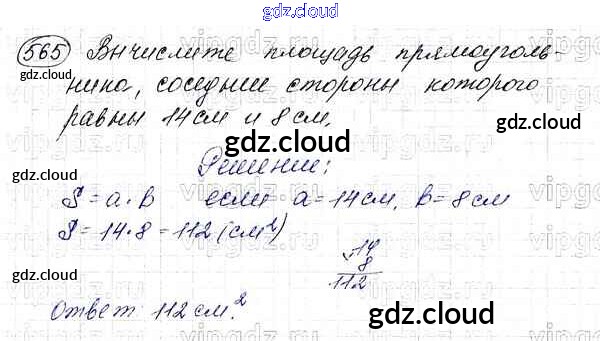 gdz.cloud
565 Вычислите площадь прямоуголь-
gdz.cloud gdz.cloud
ника, соседние стороны которого
равны 14 см и 8 см.
gdz.cloud
Решение:
S = a · b если a = 14 см, b = 8 см
S = 14 · 8 = 112 (см²)
gdz.cloud
14
8
112
gdz.cloud
Ответ 112 см.²
gdz.cloud